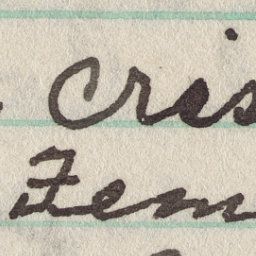 Cris
Fem